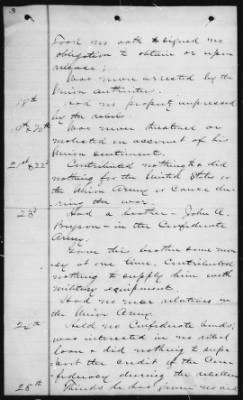 Took no oath & signed no
obligation to obtain or upon
release;
Was never arrested by the
Union authorities.
18th
Had no property impressed
by the rebels
19th & 20th Was never threatened or
molested on account of his
Union sentiments.
21st & 22d Contributed nothing & did
nothing for the United States or
the Union Army or cause du-
ring the war.
23d Had a brother - John A.
Bryson - in the Confederate
Army.
Gave this brother some mon
ey at one time. Contributed
nothing to supply him with
military equipment.
Had no near relatives in
the Union Army.
24th Held no Confederate bonds,
was interested in no rebel
loan & did nothing to supp
ort the credit of the Con-
federacy during the
25th Thinks he has given no aid